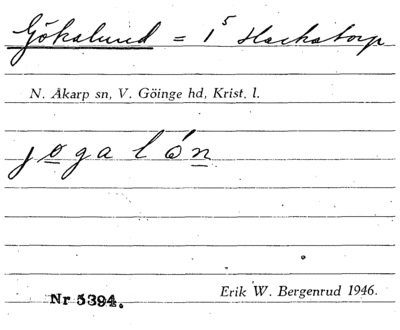 Gökalund = 1⁵ Hackatorp
N. Åkarp sn, V. Göinge hd, Krist. l.
joga lón
Nr 5394.
Erik W. Bergenrud 1946.